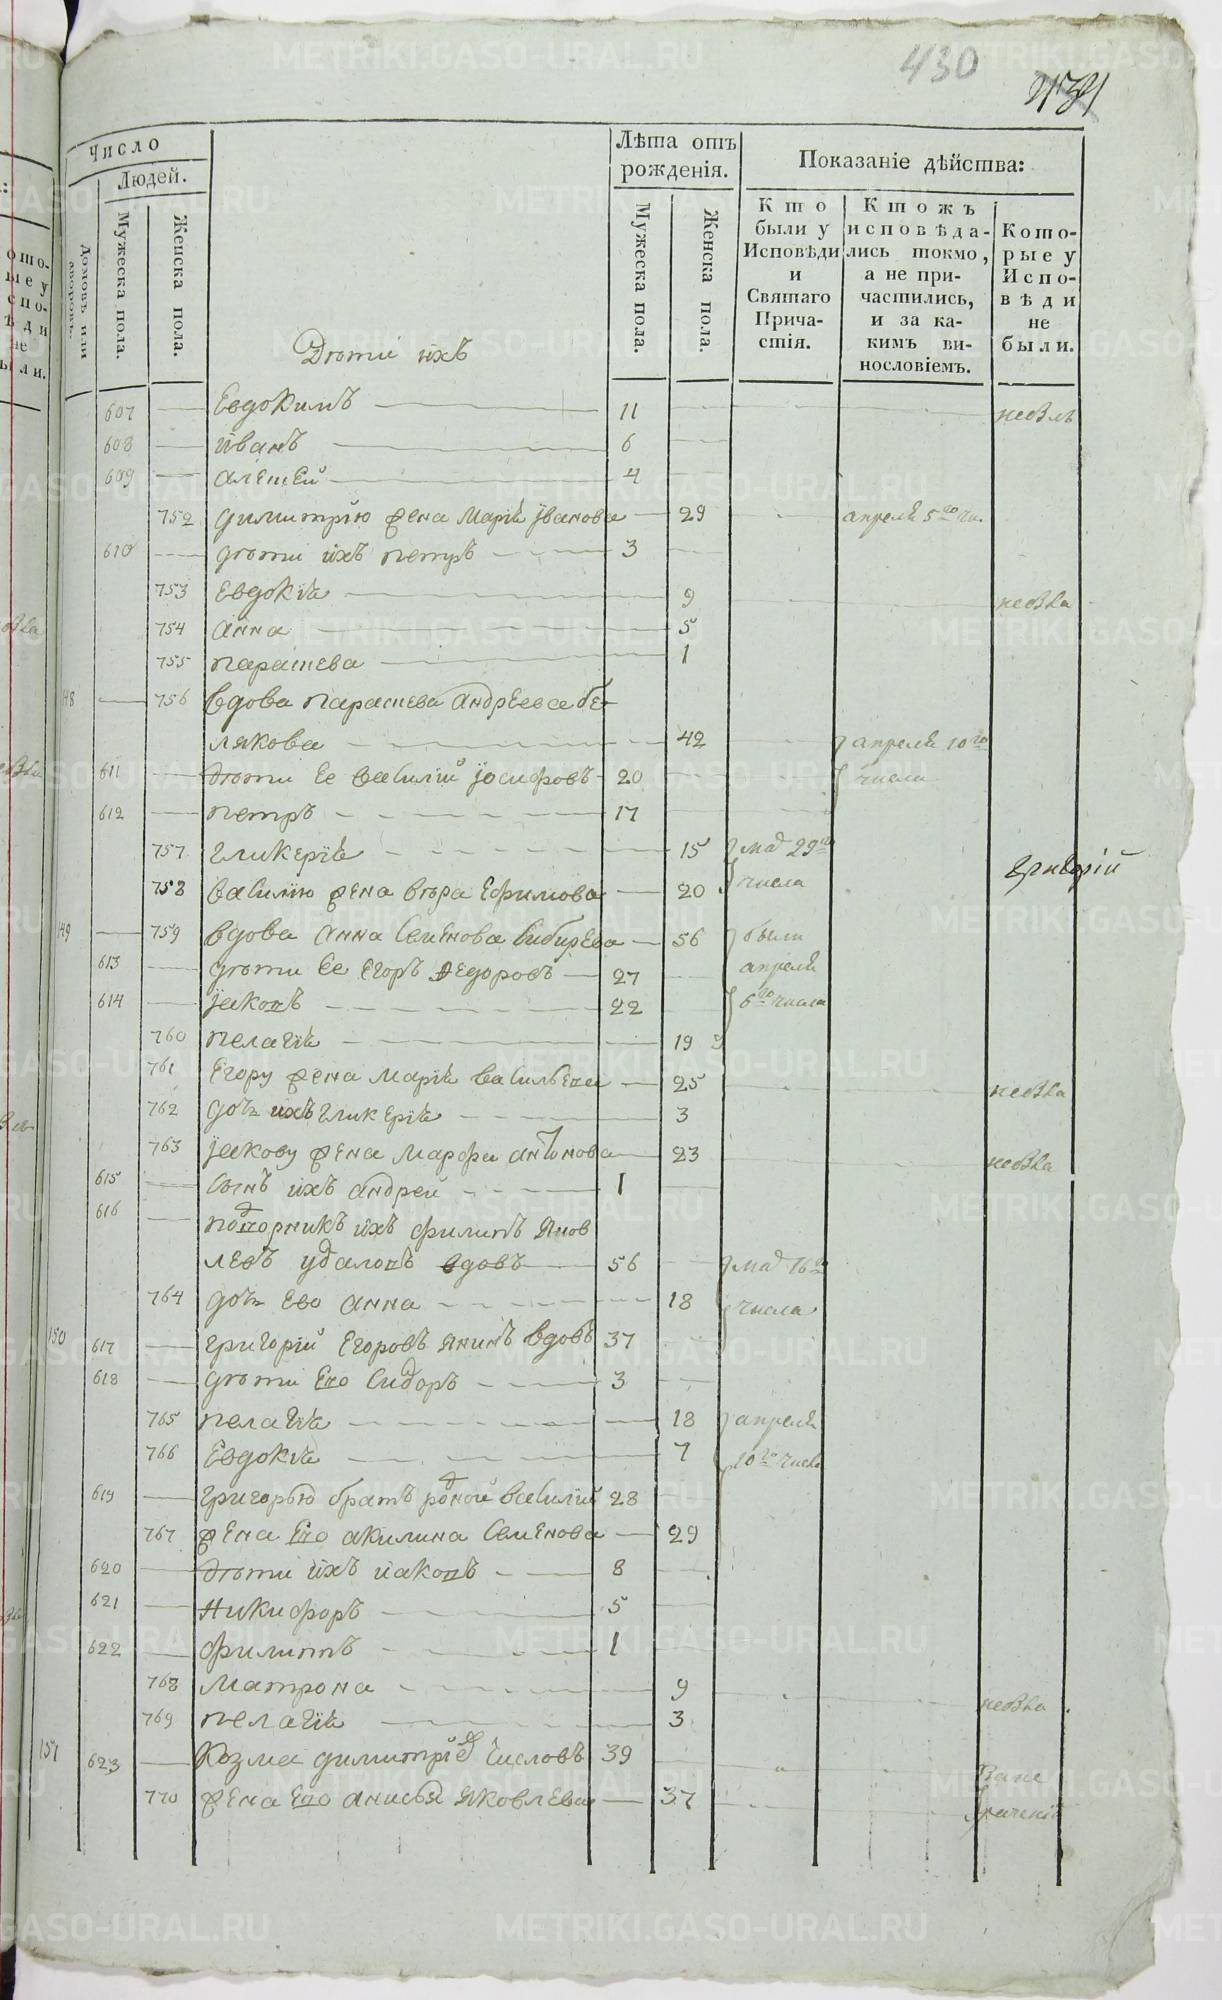 430
431
Число
Людей.
Домовъ или дворовъ.
Мужеска пола.
Женска пола.
Лѣта отъ рожденія.
Мужеска пола.
Женска пола.
Показаніе дѣйства:
Кто были у Исповѣди и Святаго Причастія.
Ктожъ исповѣдались токмо, а не причастились, и за какимъ винословіемъ.
Которые у Исповѣди не были.
Дѣти ихъ
607 Евдокимъ 11
608 иванъ 6
609 алеѯей 4
752 димитрію жена Марія Іванова 29 апреля 5го чи.
610 дѣти ихъ петръ 3
753 Евдокія 9
754 анна 5
755 параскева 1
148 756 вдова параскева андреева бе-
лякова 42 апреля 10го
611 дѣти ее василий Іосифовъ 20 числа
612 петръ 17
757 гликерія 15 маѧ 29го
758 василию жена вѣра Ефимова 20 числа
Григорій
149 759 вдова анна Семенова Сибирева 56 были
613 дѣти ее Егоръ Федоровъ 27 апреля
614 Іаковъ 22 6го числа
760 пелагія 19
761 Егору жена Марія васильева 25
762 дочь ихъ гликерія 3
763 Іакову жена Марфа антонова 23
615 Сынъ ихъ андрей 1
616 подворникъ ихъ филипъ Яков
левъ удаловъ вдовъ 56 маѧ 16го
764 дочь ево анна 18 числа
150 617 григорій Егоровъ Янинъ вдовъ 37
618 дѣти Его Сидоръ 3
765 пелагія 18 апреля
766 Евдокія 7 10го числа
619 григорью братъ родной василий 28
767 жена Его акилина Семенова 29
620 дѣти ихъ иаковъ 8
621 Никифоръ 5
622 филипъ 1
768 матрона 9
769 пелагія 3
151 623 Козма димитріевъ Числовъ 39
770 жена Его анисья Яковлева 37
METRIKI.GASO-URAL.RU